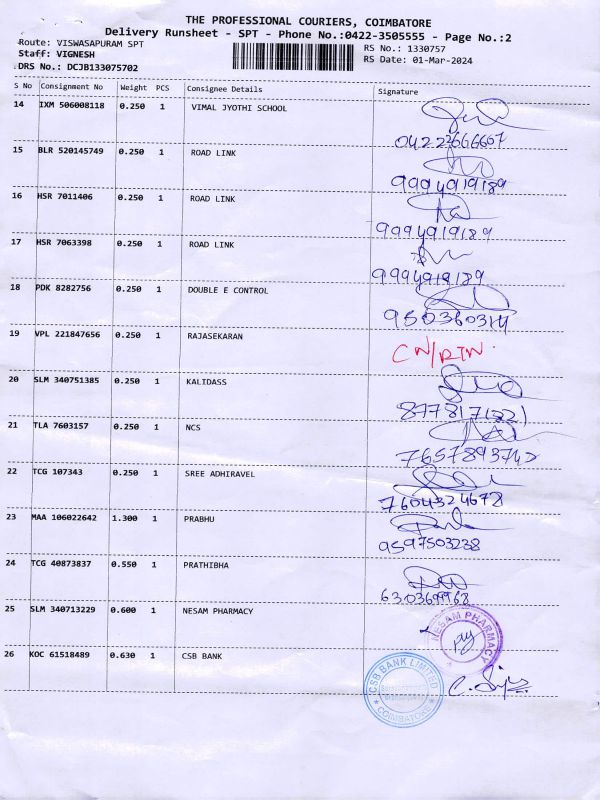 THE PROFESSIONAL COURIERS, COIMBATORE
Delivery Runsheet - SPT - Phone No.:0422-3505555 - Page No.:2
Route: VISWASAPURAM SPT
RS No.: 1330757
Staff: VIGNESH
RS Date: 01-Mar-2024
DRS No.: DCJB133075702
S No Consignment No Weight PCS Consignee Details Signature
14 IXM 506008118 0.250 1 VIMAL JYOTHI SCHOOL
04222666667
15 BLR 520145749 0.250 1 ROAD LINK
9994919189
16 HSR 7011406 0.250 1 ROAD LINK
9994919189
17 HSR 7063398 0.250 1 ROAD LINK
9994919189
18 PDK 8282756 0.250 1 DOUBLE E CONTROL
19 VPL 221847656 0.250 1 RAJASEKARAN CN/RTN
20 SLM 340751385 0.250 1 KALIDASS
21 TLA 7603157 0.250 1 NCS
22 TCG 107343 0.250 1 SREE ADHIRAVEL
7604324678
23 MAA 106022642 1.300 1 PRABHU
9597503238
24 TCG 40873837 0.550 1 PRATHIBHA
6303699968
25 SLM 340713229 0.600 1 NESAM PHARMACY
NESAM PHARMACY
26 KOC 61518489 0.630 1 CSB BANK
CSB BANK LIMITED
COIMBATORE